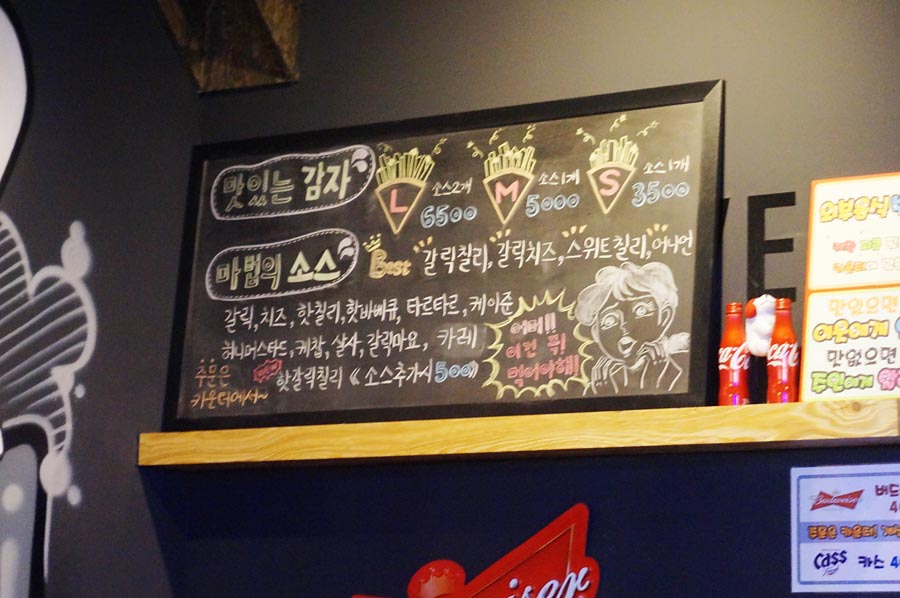 맛있는 감자
L 소스2개 6500
M 소스1개 5000
S 소스1개 3500
마법의 소스
Best 갈릭칠리, 갈릭치즈, 스위트칠리, 어니언
갈릭, 치즈, 핫칠리, 핫바베큐, 타르타르, 케이준
허니머스타드, 케찹, 살사, 갈릭마요, 카레
핫갈릭칠리 《 소스추가시 500》
주문은
카운터에서~
어머!!
이건 꼭!
먹어야해!!
E
Coca-Cola
외부음식
맛있으면
이웃에게
맛없으면
주인에게
Budweiser
버드
Cass
카스